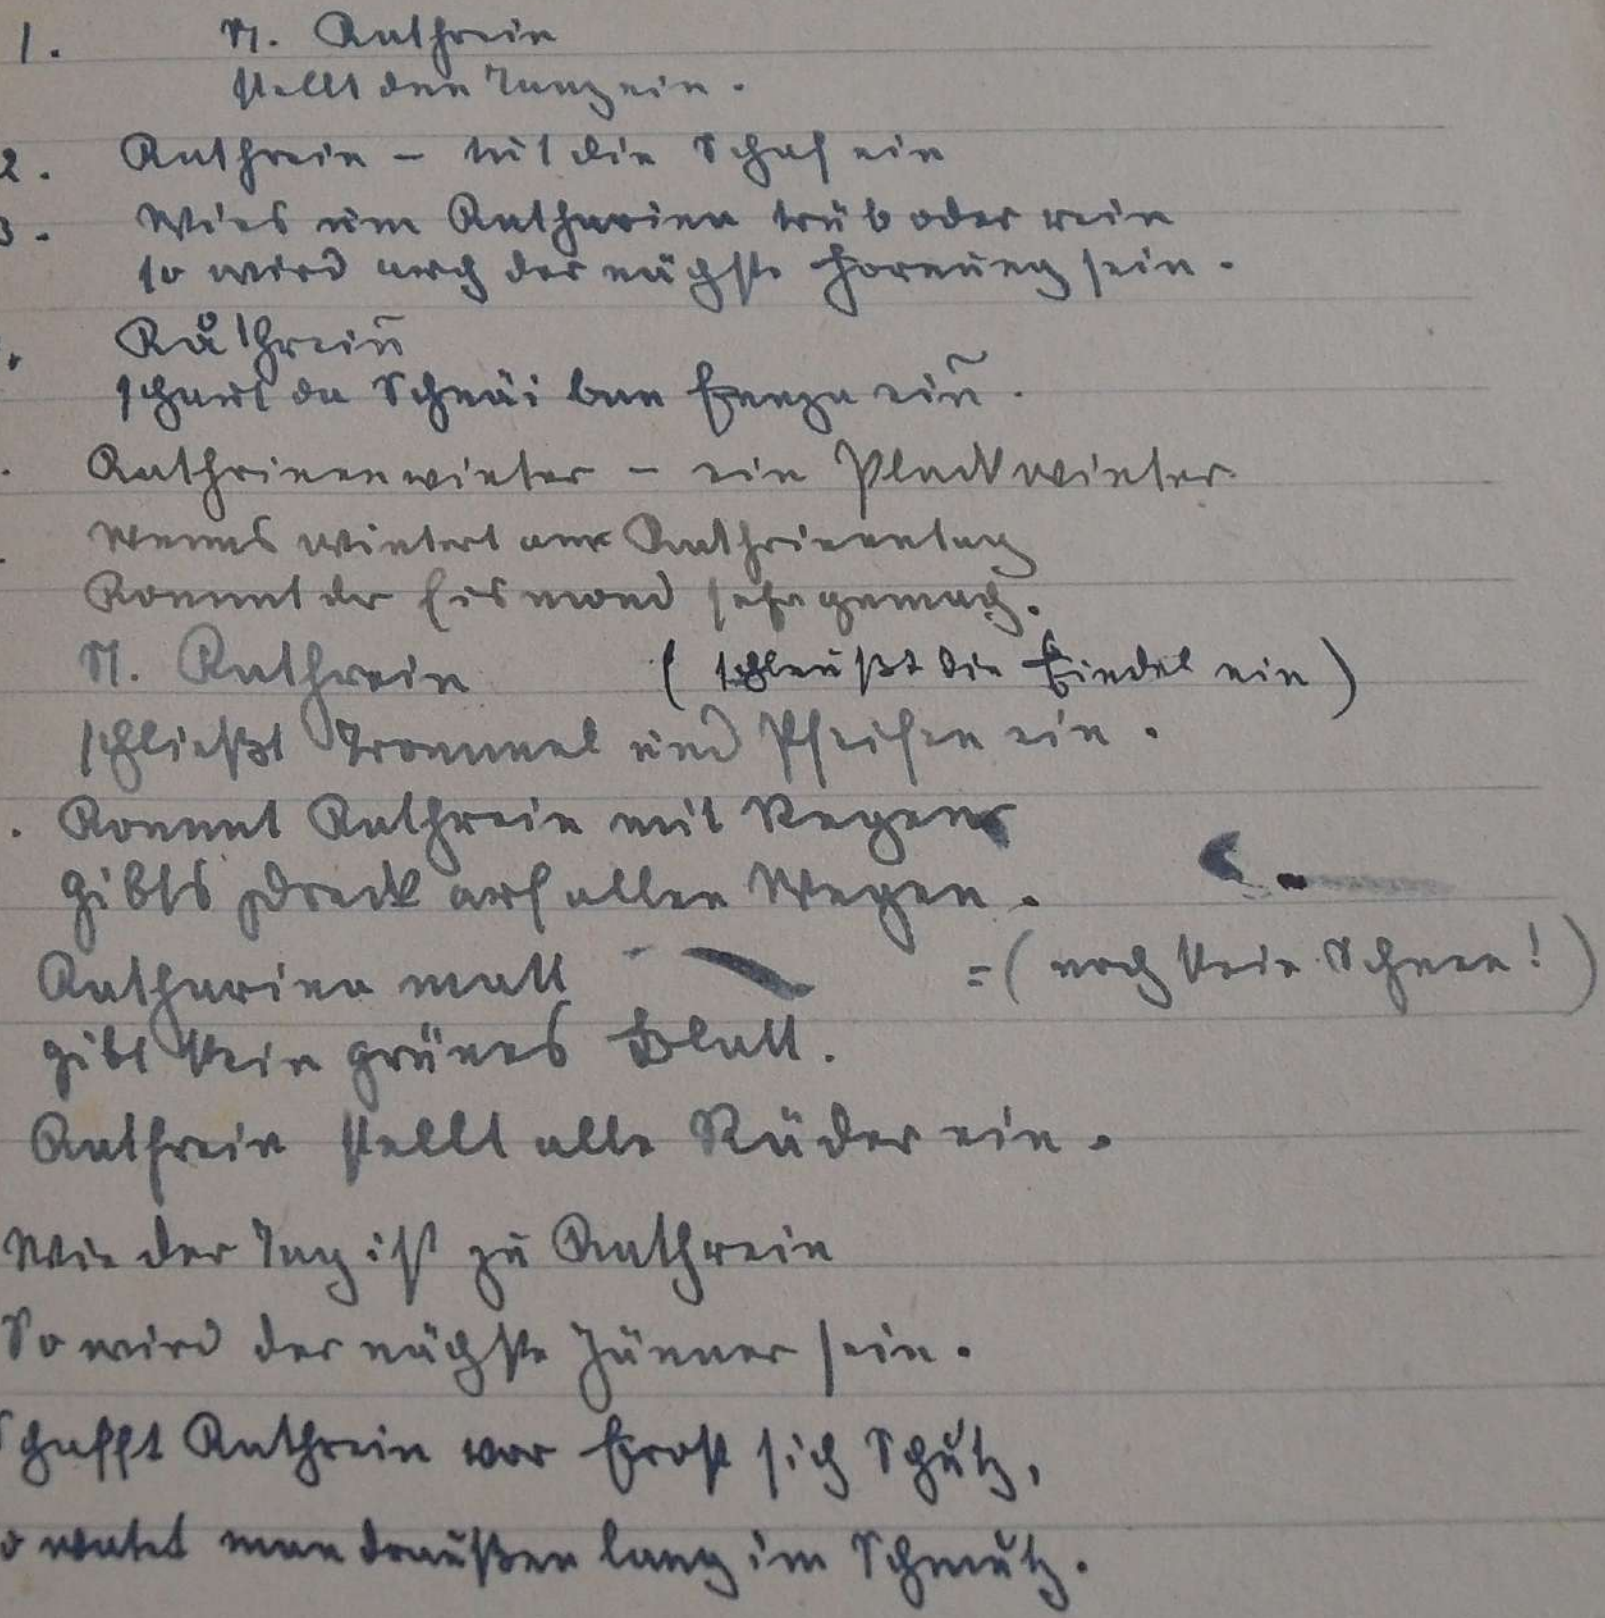 1. St. Kathrein
stellt den Tanz ein.
2. Kathrein – tut die Schaf ein
3. Wies um Katharina trüb oder rein
so wird auch der nächste Hornung sein.
Kåthrein̄
schaut da Schnäi ban Fenza ein̄.
Kathrinenwinter – ein Plackwinter
Wenns wintert am Kathrinentag
Kommt der Eismond sehr gemach.
St. Kathrein (schleußt die Fiedel ein)
schließt Trommel und Pfeifen ein.
Kommt Kathrein mit Regen
gibts Dreck auf allen Wegen.
Katharina matt =(noch kein Schnee!)
gibt kein grünes Blatt.
Kathrein stellt alle Räder ein.
Wie der Tag ist zu Kathrein
So wird der nächste Jänner sein.
Schafft Kathrein vor Frost sich Schutz,
so watet man draußen lang im Schmutz.